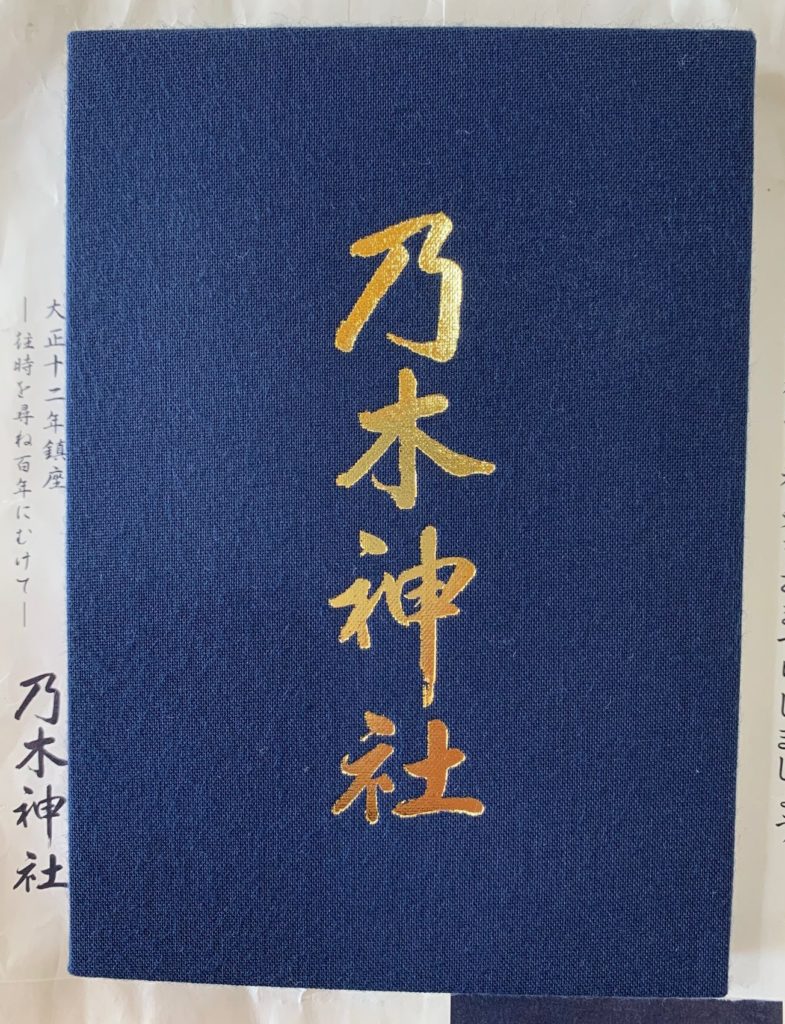 乃木神社
大正十二年鎮座
―往時を尋ね百年にむけて―
乃木神社